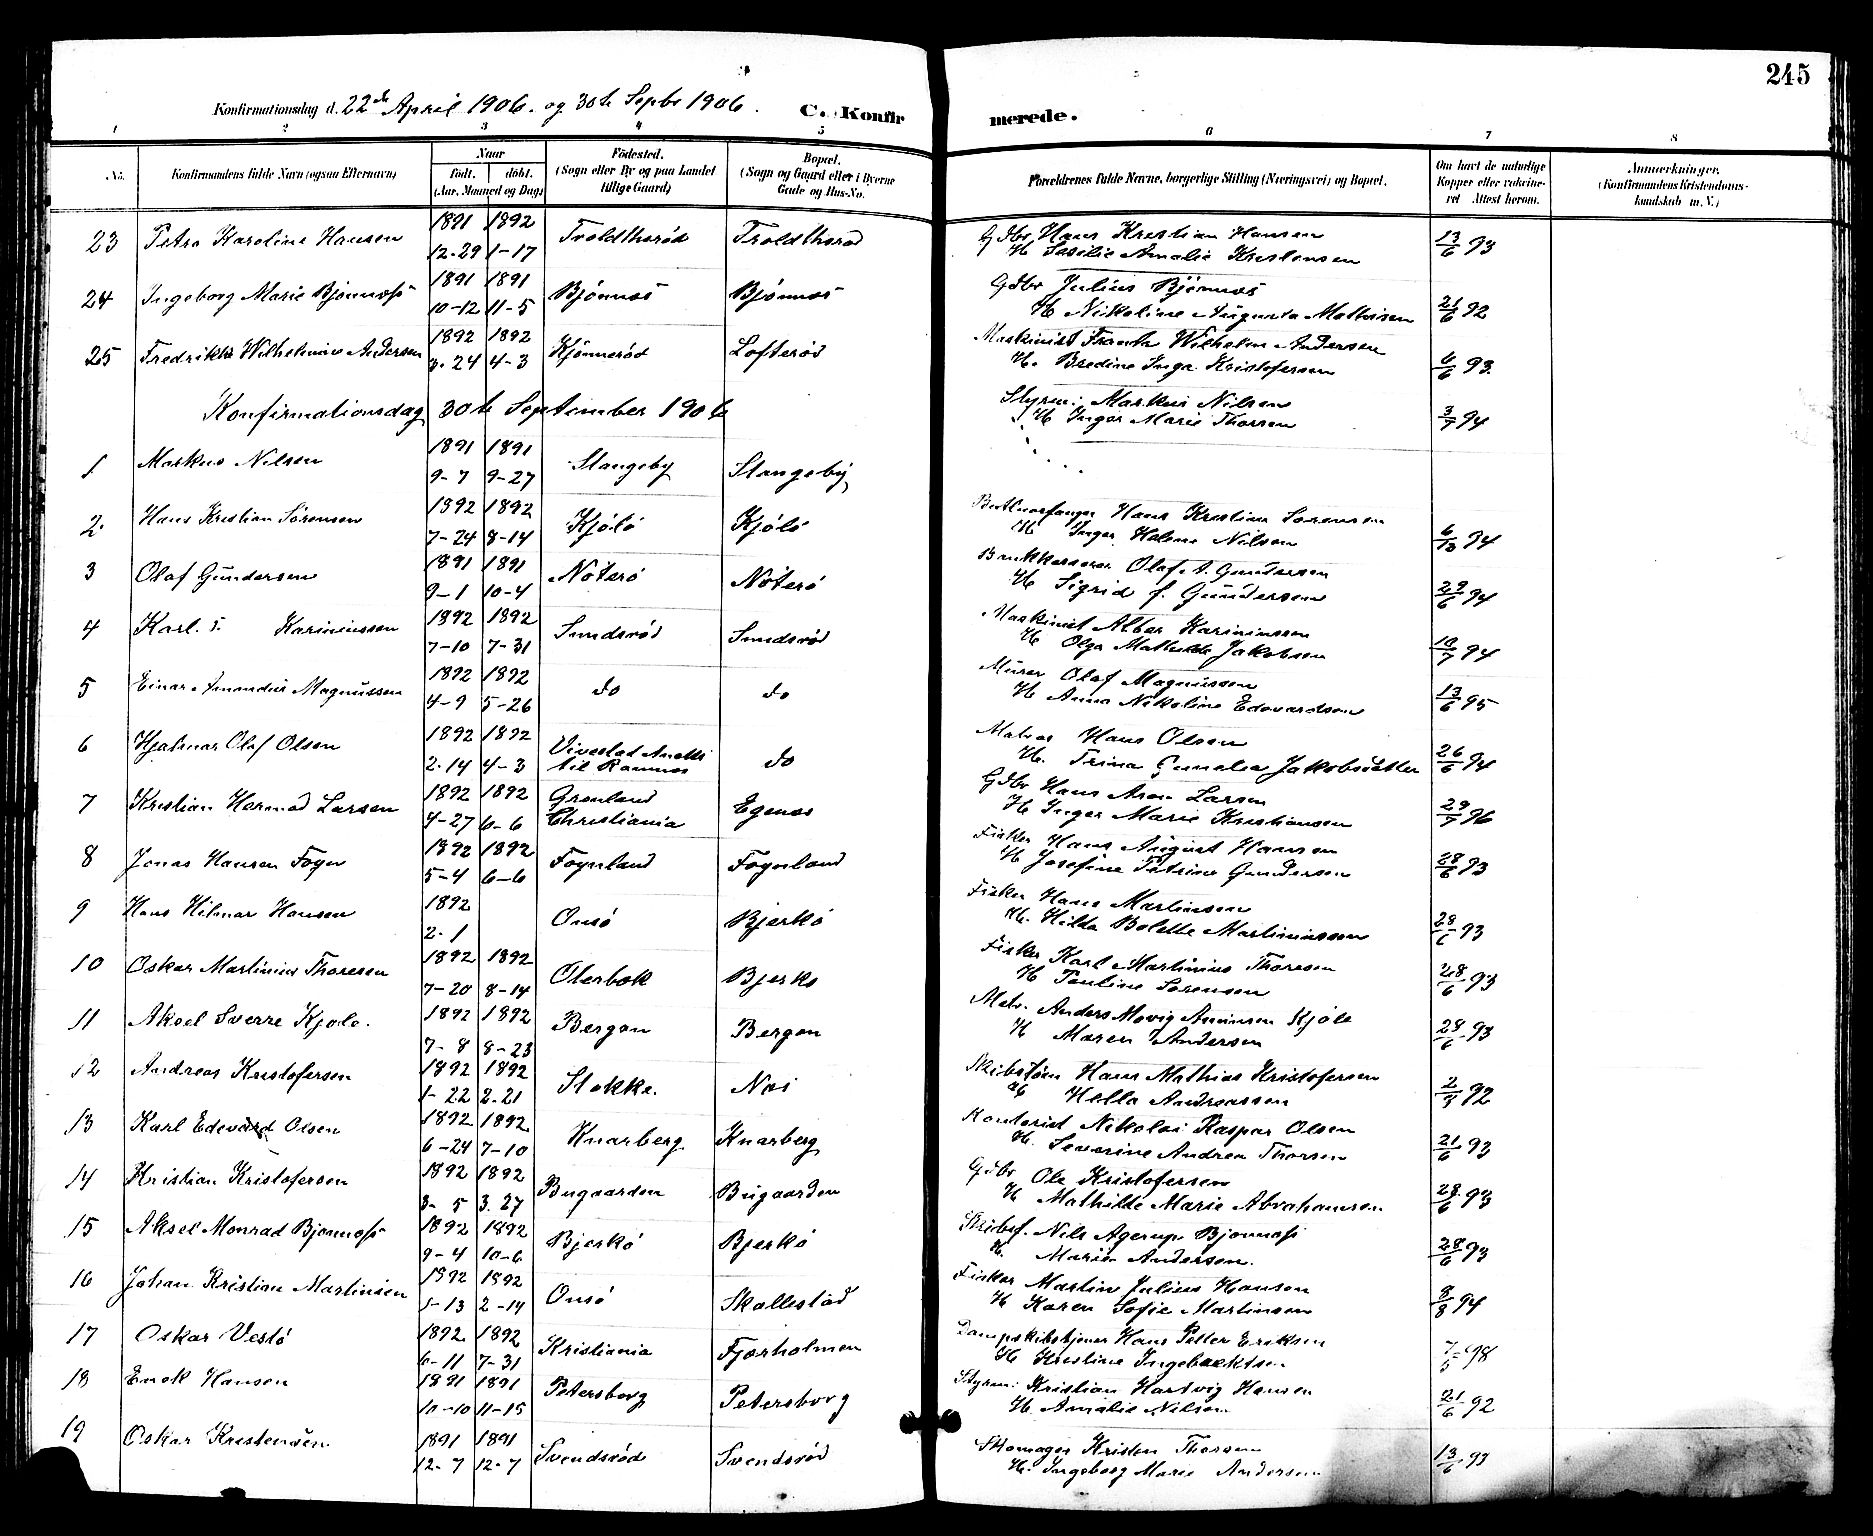 245
Konfirmationsdag d. 22de April 1906. og 30te Septbr 1906. C. Konfirmerede.
1 2 3 4 5 6 7 8
No. Konfirmandens fulde Navn (ogsaa Efternavn) Naar født. døbt. (Aar, Maaned og Dag) Fødested. (Sogn eller By og paa Landet tillige Gaard) Bopæl. (Sogn og Gaard eller i Byerne Gade og Hus-No. Forældrenes fulde Navne, borgerlige Stilling (Næringsvei) og Bopæl. Om havt de naturlige Kopper eller vaksineret Attest herom. Anmerkninger. (Konfirmandens Kristendomskundskab m. V.)
23 Petra Karoline Hansen 1891 12-29 1892 1-17 Troldthsrød Troldthsrød Gdbr Hans Kristian Hansen
H Sesilie Amalie Kristensen 13/6 93
24 Ingeborg Marie Bjønnæss 1891 10-12 1891 11-5 Bjønnæs Bjønnæs Gdbr Julius Bjønnæs
H Nikoline Augusta Mathisen 21/6 92
25 Fredrikke Wilhelmine Andersen 1892 3-24 1892 4-3 Kjønnerød Lofterød Maskinist Frants Wilhelm Andersen
H. Bredine Inga Kristofersen 6/6 93.
Konfirmationsdag 30te September 1906
1 Markus Nilsen 1891 9-7 1891 9-27 Stangeby Stangeby Styrm: Markus Nilsen
H Inger Marie Thorsen 3/7 94
2. Hans Kristian Sørensen 1892 7-24 1892 8-14 Kjøló Kjøló Hans Kristian Sørensen
H Inger Helene Nilsen 6/13 94
3 Olaf Gundersen 1891 9-1 1891 10-4 Nøterø Nøterø Bankkasserer Olaf A. Gundersen
H Sigrid f. Gundersen 29/6 94
4 Karl. Kariniussen 1892 7-10 1892 7-31 Smidsrød Smidsrød Maskinist Albar Kariniussen
H Olga Mathilde Jakobsen 10/7 94
5 Einar Amandus Magnussen 1892 4-9 1892 5-26 do do Murer Olaf Magnussen
H Anna Nikoline Edevardsen 13/6 95
6 Hjalmar Olaf Olsen 1892 2-14 1892 4-3 Vivestad Anetts
til Ramnes do Matros Hans Olsen
H. Trina Gunelia Jakobsdatter 26/6 94
7 Kristian Hermod Larsen 1892 4-27 1892 6-6 Grønland
Christiania Egenæs Gdbr Hans Aron Larsen
H Inger Marie Kristiansen 29/7 96
8 Jonas Hansen Føyn 1892 5-4 1892 6-6 Føynland Føynland Fisker Hans August Hansen
H Josefine Petrine Gundersen 28/6 93
9 Hans Hilmar Hansen 1892 2-1 Onsø Bjerkø Fisker Hans Martinsen
H. Hilda Bolette Martiniussen 28/6 93
10 Oskar Martinius Thoresen 1892 7-20 1892 8-14 Oterbæk Bjerkø Fisker Karl Martinius Thoresen
H Pauline Sørensen 28/6 93
11 Aksel Sverre Kjøle. 1892 7-8 1892 8-23 Bergan Bergan Matr. Anders Movig Kjøle
H Maren Andersen 28/6 93
12 Andreas Kristofersen 1892 1-22 1892 2-21 Stokke. Nes Skibstøm Hans Mathias Kristofersen
H Hella Andreassen 2/3 92
13 Karl Edevard Olsen 1892 6-24 1892 7-10 Knarberg Knarberg Kontorist Nikolai Kaspar Olsen
H. Severine Andrea Thorsen 21/6 93
14 Kristian Kristofersen 1892 3-5 1892 3-27 Bugaarden Bugaarden Gdbr Ole Kristofersen
H Mathilde Marie Abrahamsen 28/6 93
15 Aksel Monrad Bjønnæss 1892 9-4 1892 10-6 Bjerkø Bjerkø Skibsf. Nils Agerup Bjønnæss
H. Marie Andersen. 28/6 93
16 Johan Kristian Martinsen 1892 1-13 1892 2-14 Onsø Skallestad Fisker Martin Julius Hansen
H Karen Sofie Martinsen 8/8 94
17 Oskar Vestø 1892 6-11 1892 7-31 Kristiania Fjærholmen Hans Petter Eriksen
H Kristine Ingebrektsen 7/5 98
18 Enok Hansen 1891 10-10 1891 11-15 Petersborg Petersborg Styrm: Kristian Hartvig Hansen
H. Amalie Nilsen 21/6 92
19 Oskar Kristensen 1891 12-7 1891 12-7 Svendsrød Svendsrød Skomager Kristen Thorsen
H. Ingeborg Marie Andersen 13/6 93